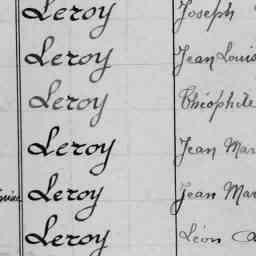 Leroy Joseph
Leroy Jean Louis
Leroy Théophile
Leroy Jean Mar
Leroy Jean Mar
Leroy Léon